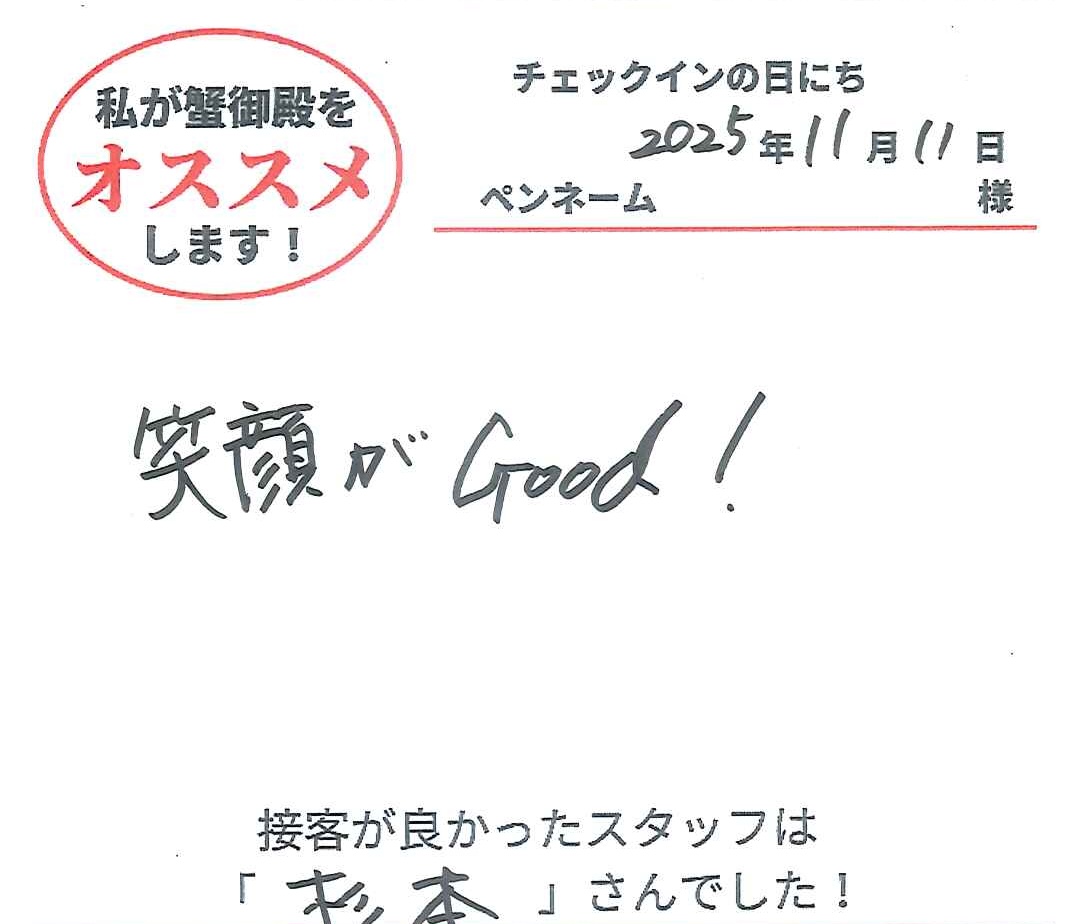 私が蟹御殿を
オススメ
します！
チェックインの日にち
2025年11月11日
ペンネーム 様
笑顔がGood!
接客が良かったスタッフは
「杉本」さんでした！